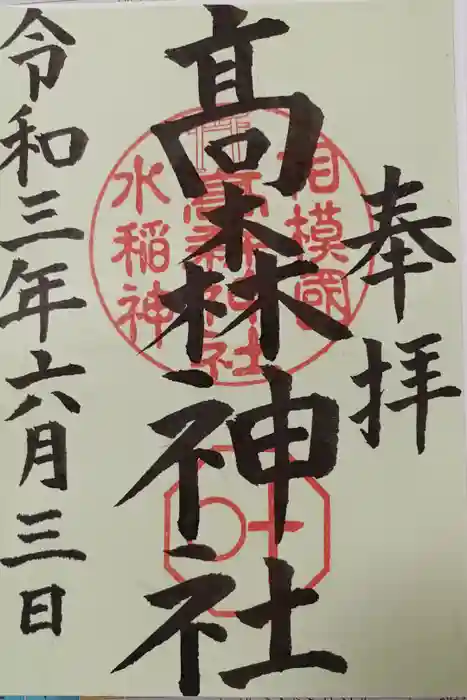 奉拝
相模國
髙森神社
水稲神
髙森神社
令和三年六月三日